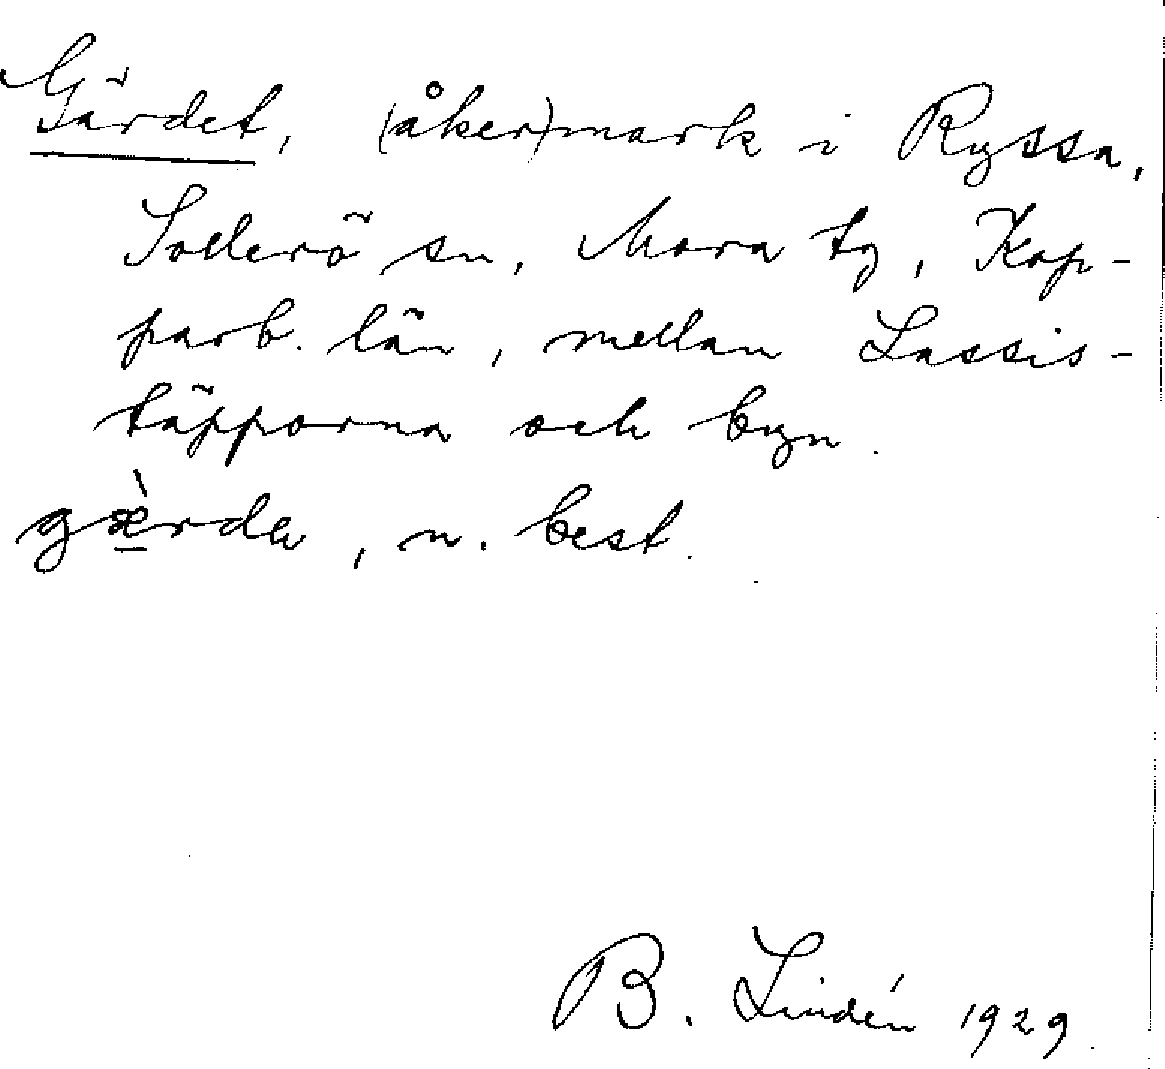 Gärdet, (åker)mark i Ryssa,
Sollerö sn, Mora tg, Kop-
parb. län, mellan Lassis-
täpporna och byn.
gæ̱̀rda, n. best.
B. Lindén 1929.